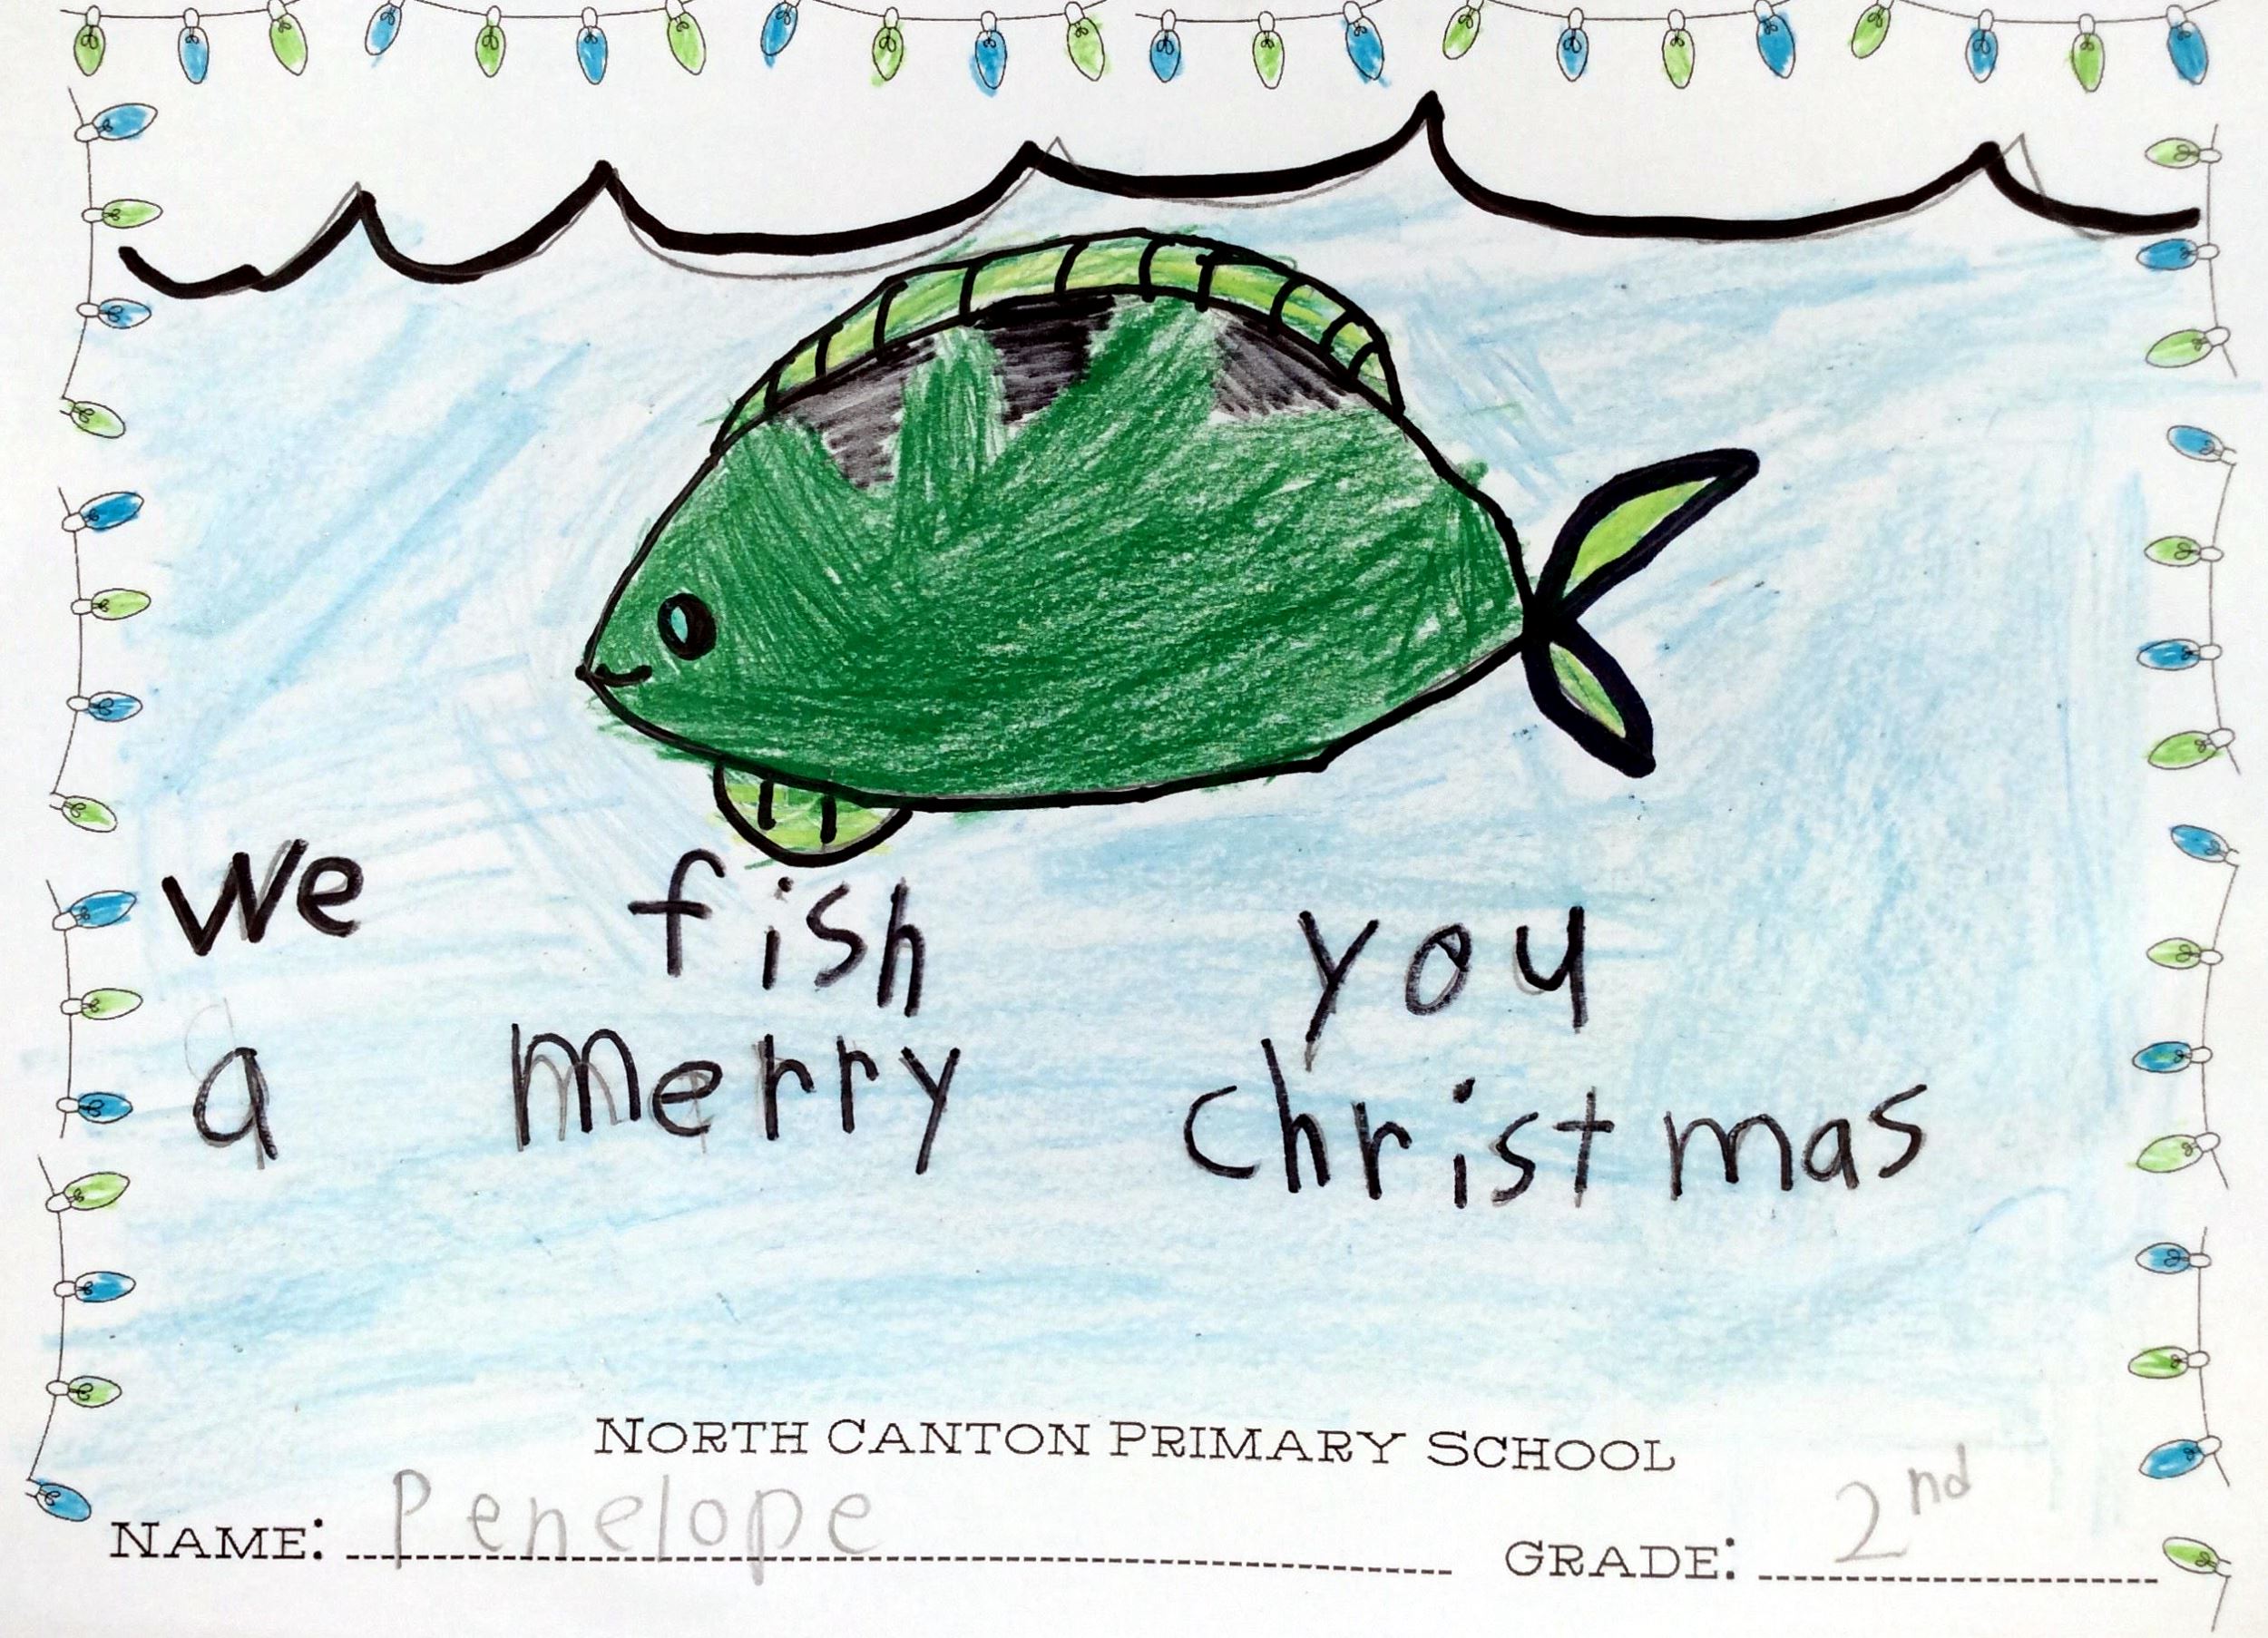 We fish you
a merry christmas
NORTH CANTON PRIMARY SCHOOL
NAME: Penelope GRADE: 2nd